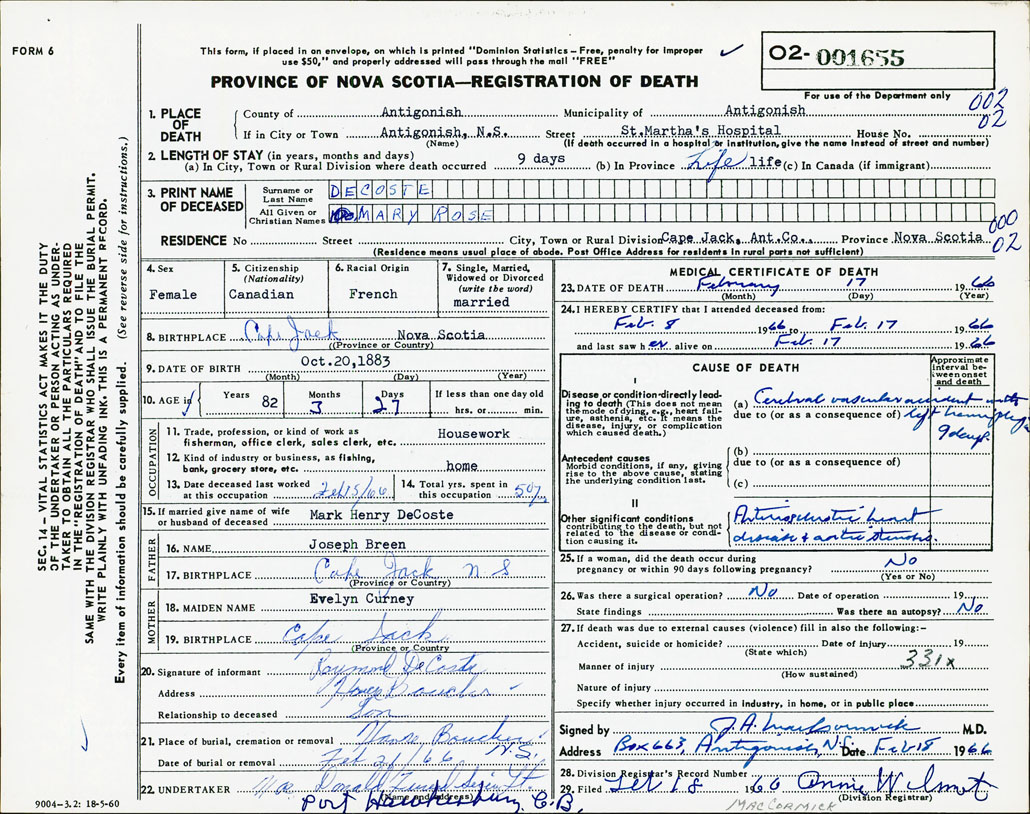 FORM 6
This form, if placed in an envelope, on which is printed "Dominion Statistics – Free, penalty for improper
use $50," and properly addressed will pass through the mail "FREE"
02- 001655
PROVINCE OF NOVA SCOTIA—REGISTRATION OF DEATH
For use of the Department only
002
02
1. PLACE OF DEATH
County of Antigonish Municipality of Antigonish
If in City or Town Antigonish, N.S. Street St.Martha's Hospital House No.
(Name) (If death occurred in a hospital or institution, give the name instead of street and number)
2. LENGTH OF STAY (in years, months and days)
(a) In City, Town or Rural Division where death occurred 9 days (b) In Province Life life (c) In Canada (if immigrant)
3. PRINT NAME OF DECEASED
Surname or Last Name DECOSTE
All Given or Christian Names MARY ROSE
000
02
RESIDENCE No Street City, Town or Rural Division Cape Jack, Ant.Co., Province Nova Scotia
(Residence means usual place of abode. Post Office Address for residents in rural parts not sufficient)
4. Sex
Female
5. Citizenship
(Nationality)
Canadian
6. Racial Origin
French
7. Single, Married,
Widowed or Divorced
(write the word)
married
8. BIRTHPLACE Cape Jack Nova Scotia
(Province or Country)
9. DATE OF BIRTH Oct.20,1883
(Month) (Day) (Year)
10. AGE is Years 82 Months 3 Days 27 If less than one day old
hrs. or min.
OCCUPATION
11. Trade, profession, or kind of work as
fisherman, office clerk, sales clerk, etc. Housework
12. Kind of industry or business, as fishing,
bank, grocery store, etc. home
13. Date deceased last worked
at this occupation Feb 5/66
14. Total yrs. spent in
this occupation 50 yrs
15. If married give name of wife
or husband of deceased Mark Henry DeCoste
FATHER
16. NAME Joseph Breen
17. BIRTHPLACE Cape Jack N S
(Province or Country)
MOTHER
18. MAIDEN NAME Evelyn Curney
19. BIRTHPLACE Cape Jack
(Province or Country)
20. Signature of informant Raymond DeCoste
Address Havre Boucher
Relationship to deceased Son
21. Place of burial, cremation or removal Havre Boucher N.S.
Date of burial or removal Feb 21/66
22. UNDERTAKER
(Name and address)
Port Hawkesbury C.B.
9004-3.2: 18-5-60
SEC. 14 – VITAL STATISTICS ACT MAKES IT THE DUTY
OF THE UNDERTAKER OR PERSON ACTING AS UNDER-
TAKER TO OBTAIN ALL THE PARTICULARS REQUIRED
IN THE "REGISTRATION OF DEATH" AND TO FILE THE
SAME WITH THE DIVISION REGISTRAR WHO SHALL ISSUE THE BURIAL PERMIT.
WRITE PLAINLY WITH UNFADING INK. THIS IS A PERMANENT RECORD.
Every item of information should be carefully supplied. (See reverse side for instructions.)
MEDICAL CERTIFICATE OF DEATH
23. DATE OF DEATH February 17 1966
(Month) (Day) (Year)
24. I HEREBY CERTIFY that I attended deceased from:
Feb. 8 1966 to Feb. 17 1966
and last saw her alive on Feb. 17 1966
CAUSE OF DEATH
Approximate
interval be-
tween onset
and death
I
Disease or condition directly lead-
ing to death (This does not mean
the mode of dying, e.g., heart fail-
ure, asthenia, etc. It means the
disease, injury, or complication
which caused death.)
(a) Cerebral vascular accident with
due to (or as a consequence of) left hemiplegia
9 days.
Antecedent causes
Morbid conditions, if any, giving
rise to the above cause, stating
the underlying condition last.
(b)
due to (or as a consequence of)
(c)
II
Other significant conditions
contributing to the death, but not
related to the disease or condi-
tion causing it.
Arteriosclerotic heart
disease & aortic stenosis.
25. If a woman, did the death occur during
pregnancy or within 90 days following pregnancy? No
(Yes or No)
26. Was there a surgical operation? No Date of operation 19
State findings Was there an autopsy? No
27. If death was due to external causes (violence) fill in also the following:–
Accident, suicide or homicide? Date of injury 19
(State which)
331x
Manner of injury
(How sustained)
Nature of injury
Specify whether injury occurred in industry, in home, or in public place
Signed by J.A. MacCormick M.D.
Address Box 663, Antigonish, N.S. Date Feb 18 1966
28. Division Registrar's Record Number
29. Filed Feb 18 1966 Annie Wilmot
(Division Registrar)
MACCORMICK